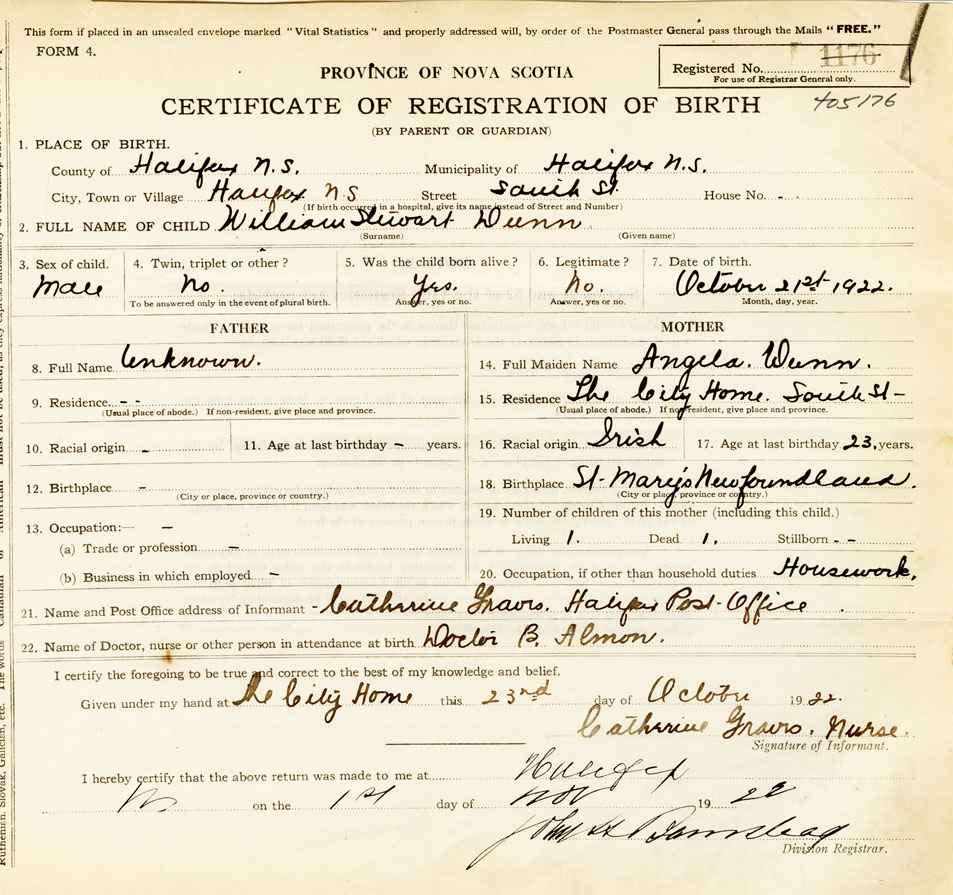 This form if placed in an unsealed envelope marked "Vital Statistics" and properly addressed will, by order of the Postmaster General pass through the Mails "FREE."
FORM 4.
Registered No. 1176
For use of Registrar General only.
PROVINCE OF NOVA SCOTIA
CERTIFICATE OF REGISTRATION OF BIRTH 405176
(BY PARENT OR GUARDIAN)
1. PLACE OF BIRTH.
County of Halifax N.S. Municipality of Halifax N.S.
City, Town or Village Halifax N S Street South St. House No. -
(If birth occurred in a hospital, give its name instead of Street and Number)
2. FULL NAME OF CHILD William Stewart Dunn
(Surname) (Given name)
3. Sex of child. 4. Twin, triplet or other? 5. Was the child born alive? 6. Legitimate? 7. Date of birth.
Male No. Yes. No. October 21st 1922.
To be answered only in the event of plural birth. Answer, yes or no. Answer, yes or no. Month, day, year.
FATHER MOTHER
8. Full Name Unknown. 14. Full Maiden Name Angela Dunn.
9. Residence - - 15. Residence The City Home. South St-
(Usual place of abode.) If non-resident, give place and province. (Usual place of abode.) If non-resident, give place and province.
10. Racial origin - 11. Age at last birthday - years. 16. Racial origin Irish 17. Age at last birthday 23, years.
12. Birthplace - 18. Birthplace St-Mary's Newfoundland.
(City or place, province or country.) (City or place, province or country.)
13. Occupation:— — 19. Number of children of this mother (including this child.)
(a) Trade or profession — Living 1. Dead 1. Stillborn - -
(b) Business in which employed - 20. Occupation, if other than household duties Housework.
21. Name and Post Office address of Informant - Catherine Graves. Halifax Post-Office
22. Name of Doctor, nurse or other person in attendance at birth Doctor B. Almon.
I certify the foregoing to be true and correct to the best of my knowledge and belief.
Given under my hand at The City Home this 23rd day of October 1922.
Catherine Graves. Nurse.
Signature of Informant.
I hereby certify that the above return was made to me at Halifax
on the 1st day of Nov 1922
John H Barnstead
Division Registrar.